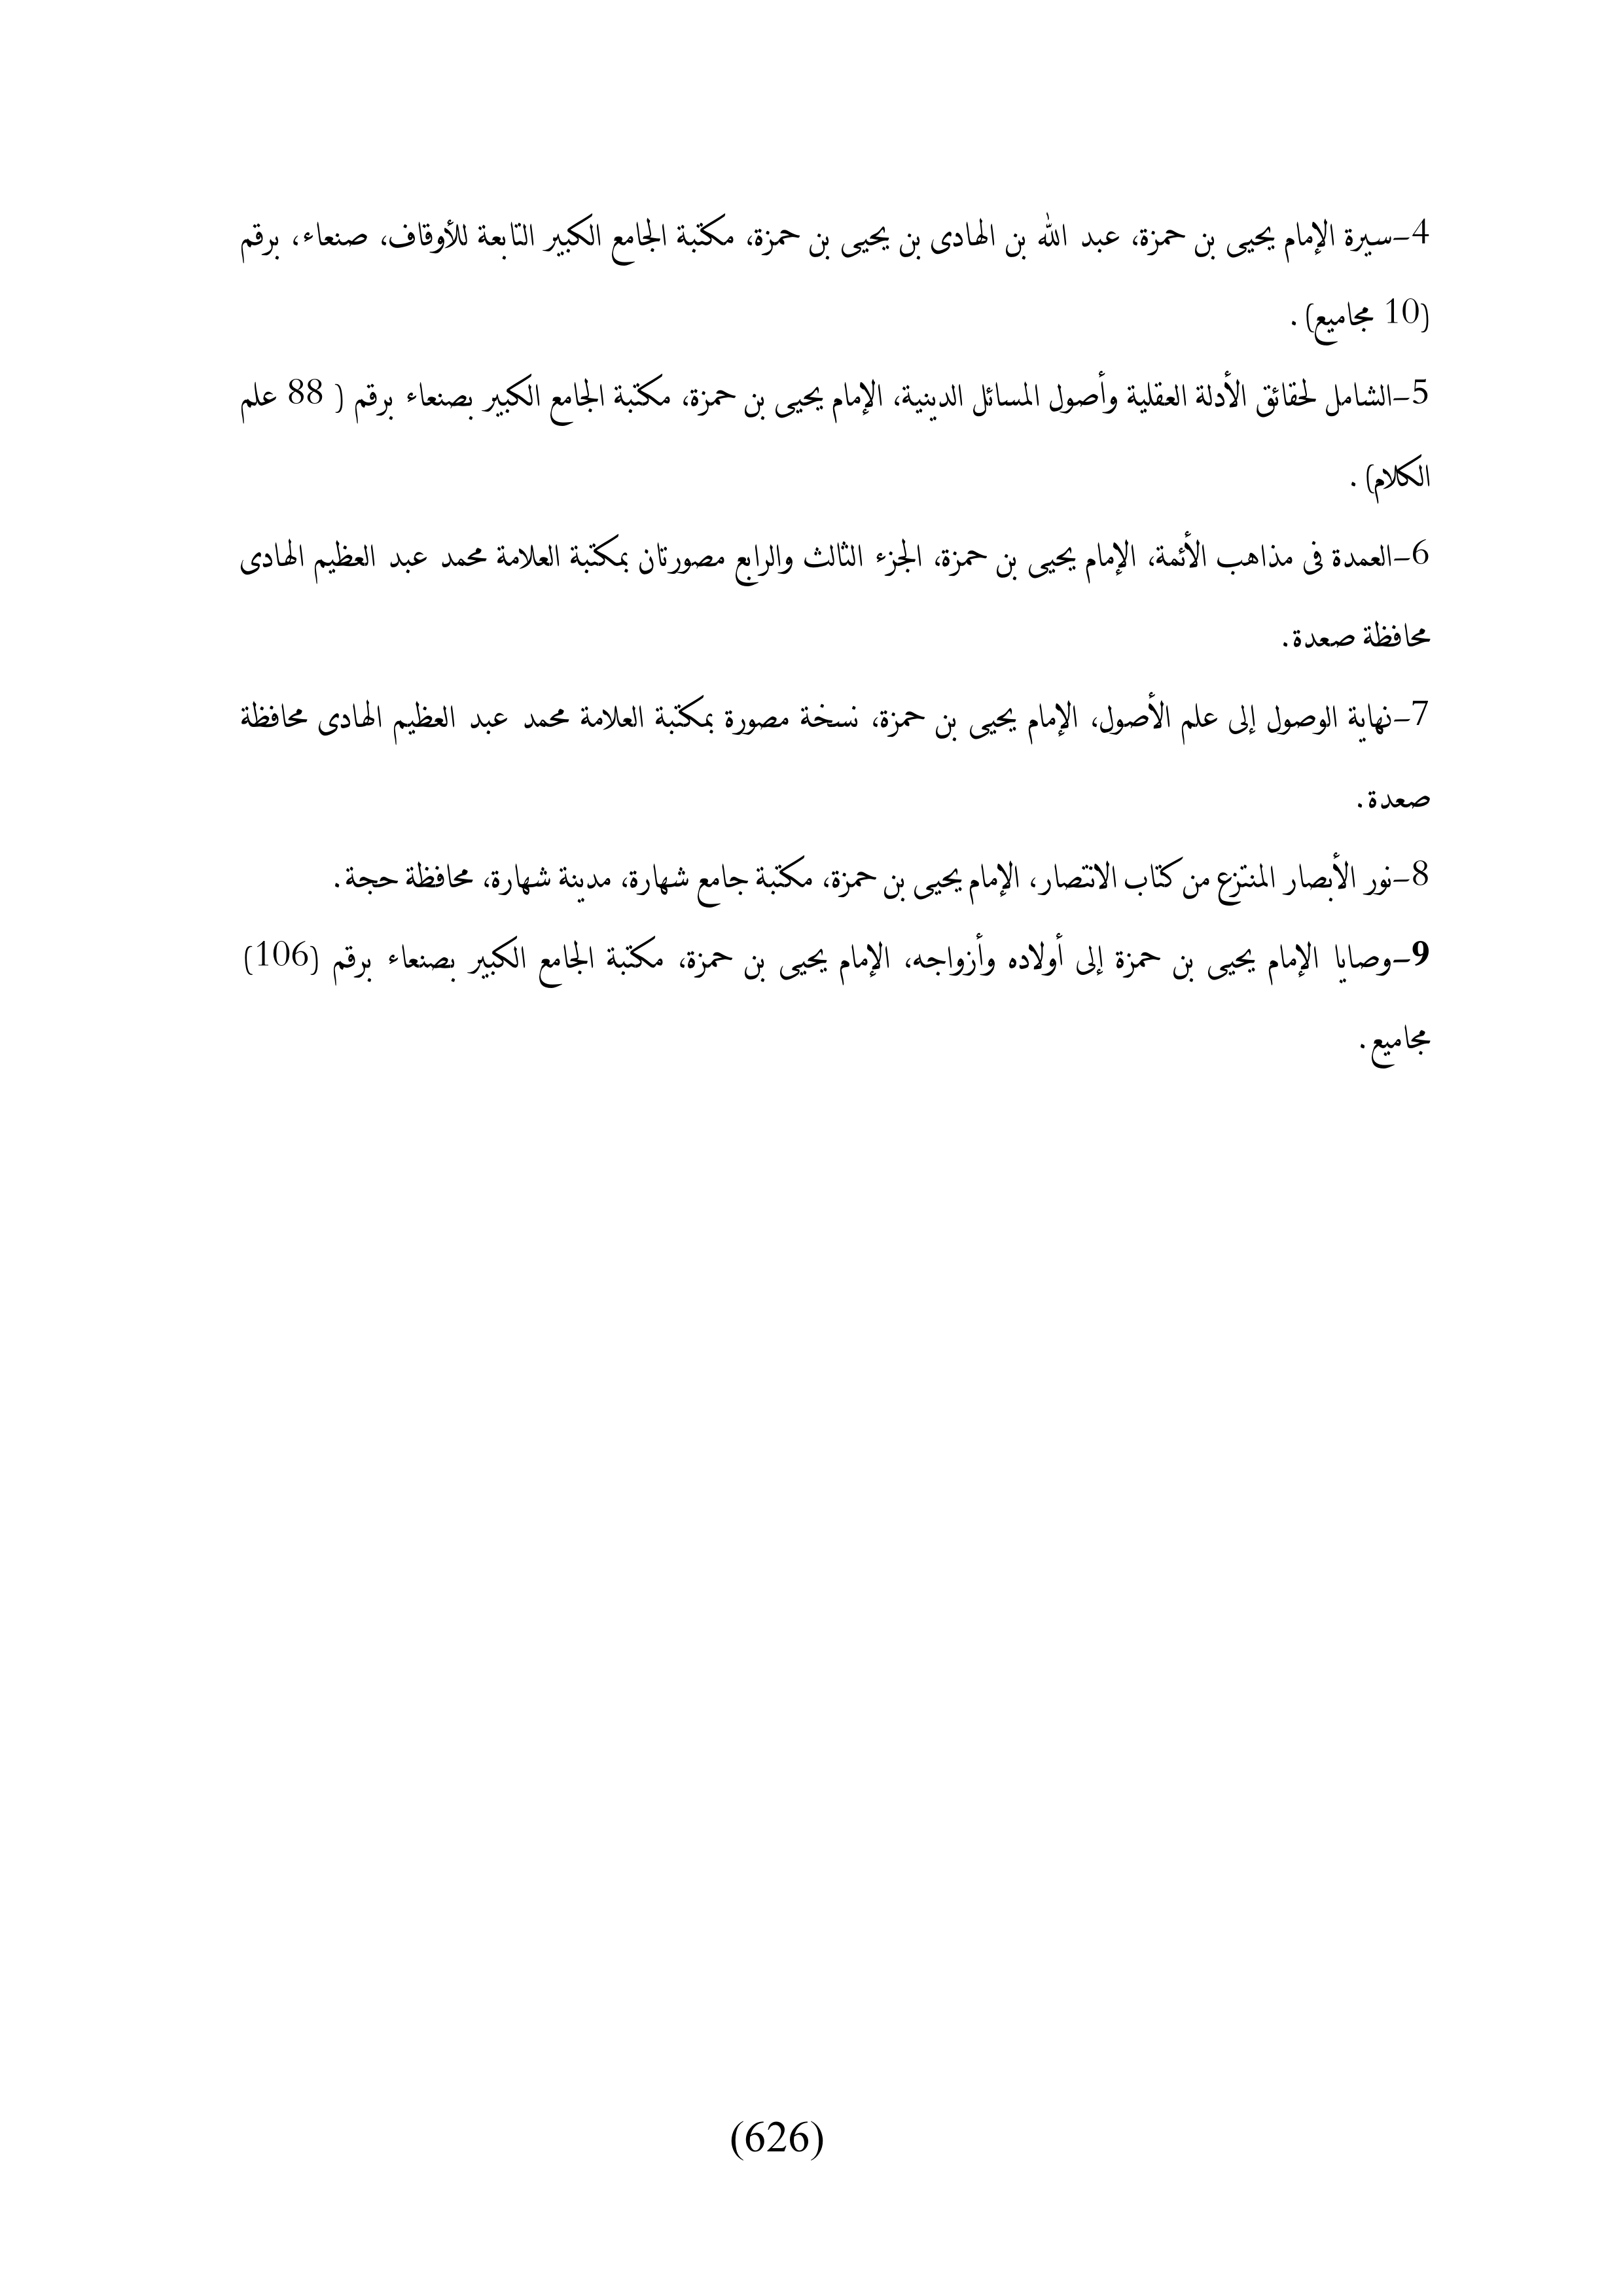 4-سيرة الإمام يحيى بن حمزة، عبد الله بن الهادى بن يحيى بن حمزة، مكتبة الجامع الكبير التابعة للأوقاف، صنعاء، برقم
(10 مجاميع) .
5-الشامل لحقائق الأدلة العقلية وأصول المسائل الدينية، الإمام يحيى بن حمزة، مكتبة الجامع الكبير بصنعاء برقم ( 88 علم
الكلام) .
6-العمدة فى مذاهب الأئمة، الإمام يحيى بن حمزة، الجزء الثالث والرابع مصورتان بمكتبة العلامة محمد عبد العظيم الهادى
محافظة صعدة.
7-نهاية الوصول إلى علم الأصول، الإمام يحيى بن حمزة، نسخة مصورة بمكتبة العلامة محمد عبد العظيم الهادى محافظة
صعدة.
8-نور الأبصار المنتزع من كتاب الانتصار، الإمام يحيى بن حمزة، مكتبة جامع شهارة، مدينة شهارة، محافظة حجة.
9-وصايا الإمام يحيى بن حمزة إلى أولاده وأزواجه، الإمام يحيى بن حمزة، مكتبة الجامع الكبير بصنعاء برقم (106)
مجاميع.
(626)